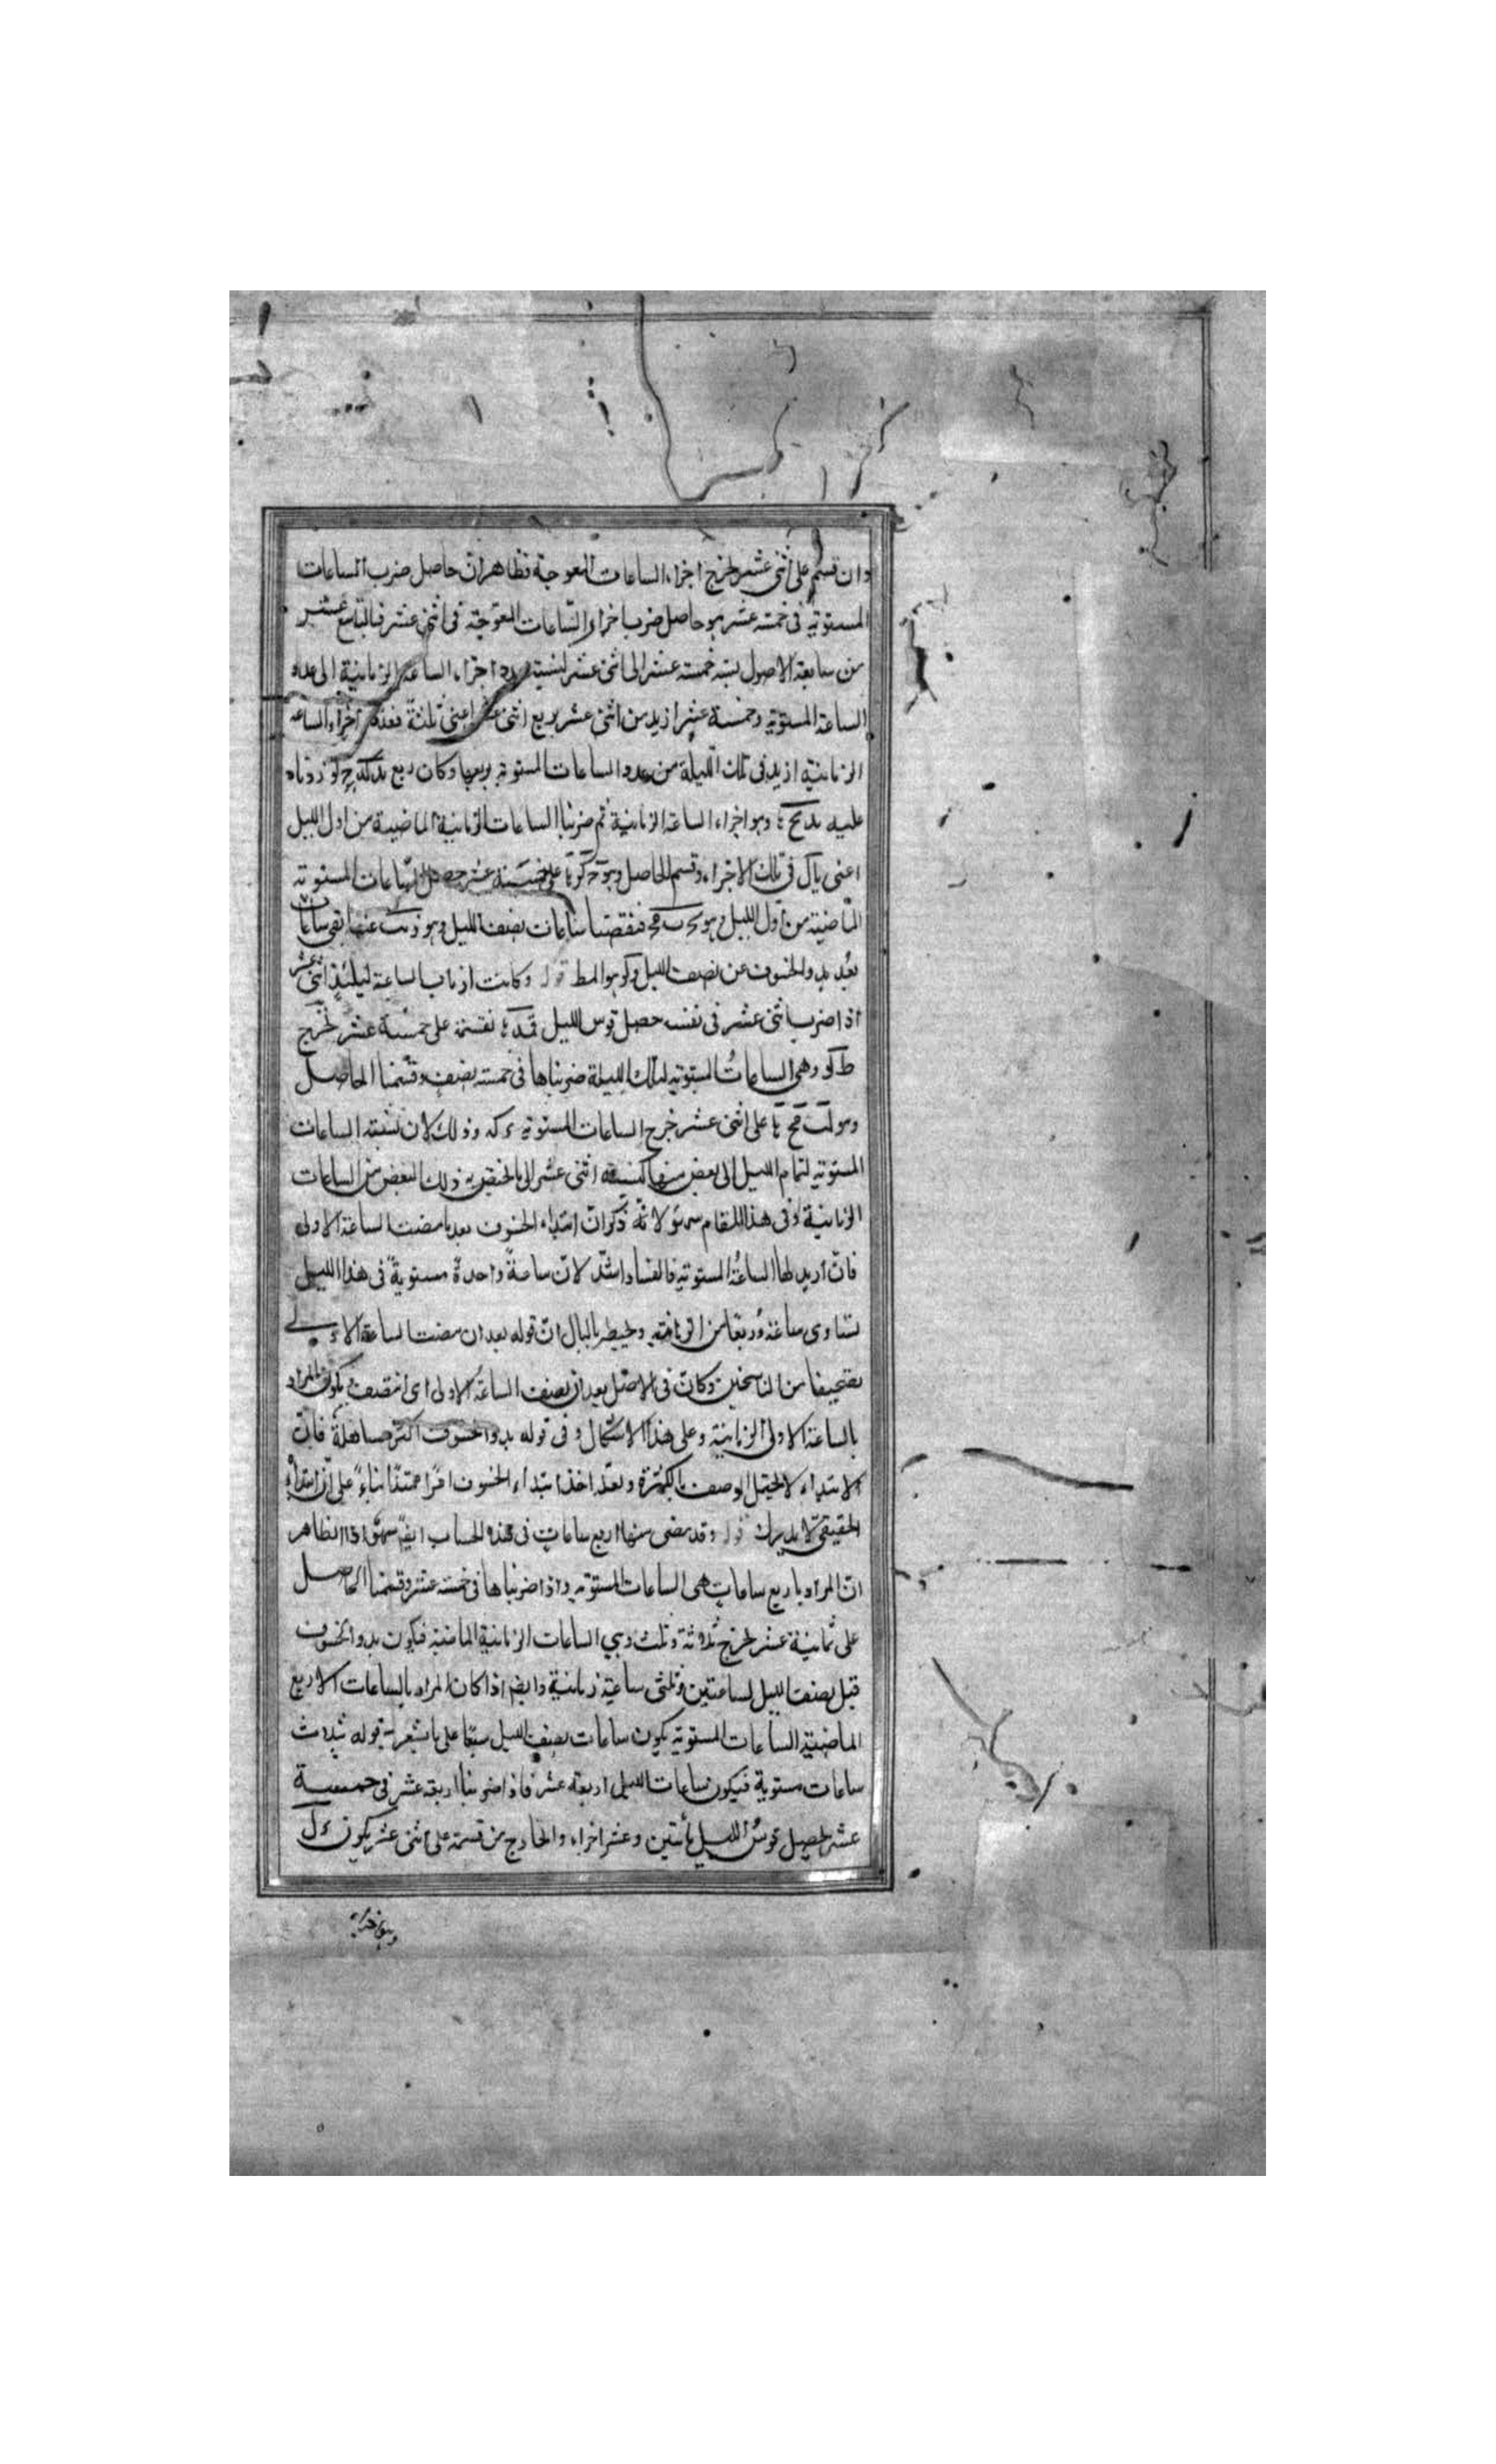 وان قسم على اثنى عشر يخرج اجزاء الساعات المعوجة فظاهر ان حاصل ضرب الساعات
المستوية فى خمسة عشر هو حاصل ضرب اجزاء الساعات المعوجة فى اثنى عشر فبالتاسع عشر
من سابعة الاصول نسبة خمسة عشر الى اثنى عشر كنسبة عدد اجزاء الساعة الزمانية الى عدد
الساعة المستوية وخمسة عشر ازيد من اثنى عشر بربع اثنى عشر اعنى ثلثة فعدد اجزاء الساعة
الزمانية ازيد فى تلك الليلة من عدد الساعات المستوية بربعها وكان ربع زدناه
عليه وهو اجزاء الساعة الزمانية ثم ضربنا الساعات الزمانية الماضية من اول الليل
اعنى فى تلك الاجزاء وقسم الحاصل وهو على خمسة عشر حصل الساعات المستوية
الماضية من اول الليل وهو فنقصنا ساعات نصف الليل وهو عنها بقى ساعات
بعد بدو الخسوف عن نصف الليل وهو المط قوله وكانت ازمان الساعة ليلئذ اثنى عشر
اذا ضرب اثنى عشر فى نفسه حصل قوس الليل نقسمه على خمسة عشر يخرج
وهى الساعات المستوية لتلك الليلة ضربناها فى خمسة نصف وقسمنا الحاصل
وهو على اثنى عشر خرج الساعات المستوية وذلك لان نسبة الساعات
المستوية لتمام الليل الى بعض منها كنسبة اثنى عشر الى ما يختص به ذلك البعض من الساعات
الزمانية وفى هذا المقام سهو لانه ذكر ان ابتداء الخسوف بعد ما مضت الساعة الاولى
فان اريد لها الساعة المستوية فالفساد اشد لان ساعة واحدة مستوية فى هذا الليل
تساوى ساعة وربعا من الزمانية ويخطر بالبال ان قوله بعد ان مضت الساعة الاولى
تصحيفا من الناسخين وكان فى الاصل بعد ان نصف الساعة الاولى اى انتصف ويكون المراد
بالساعة الاولى الزمانية وعلى هذا الاشكال وفى قوله بدو الخسوف اكثر مساهلة فان
الابتداء لا يحتمل الوصف بالكثرة وبعد اخذ ابتداء الخسوف امرا ممتدا بناء على ان ابتداءه
الحقيقى لا يدرك قوله وقد مضى منها اربع ساعات فى هذه الحساب ايضا سهو اذ الظاهر
ان المراد باربع ساعات هى الساعات المستوية واذا ضربناها فى خمسة عشر وقسمنا الحاصل
على ثمانية عشر يخرج ثلاثة وثلث وهى الساعات الزمانية الماضية فيكون بدو الخسوف
قبل نصف الليل بساعتين وثلثى ساعة زمانية وايضا اذا كان المراد بالساعات الاربع
الماضية الساعات المستوية يكون ساعات نصف الليل سبعا على ما يشعر به قوله بثلاث
ساعات مستوية فيكون ساعات الليل اربعة عشر فاذا ضربنا اربعة عشر فى خمسة
عشر يحصل قوس الليل مأتين وعشر اجزاء والخارج من قسمته على اثنى عشر يكون